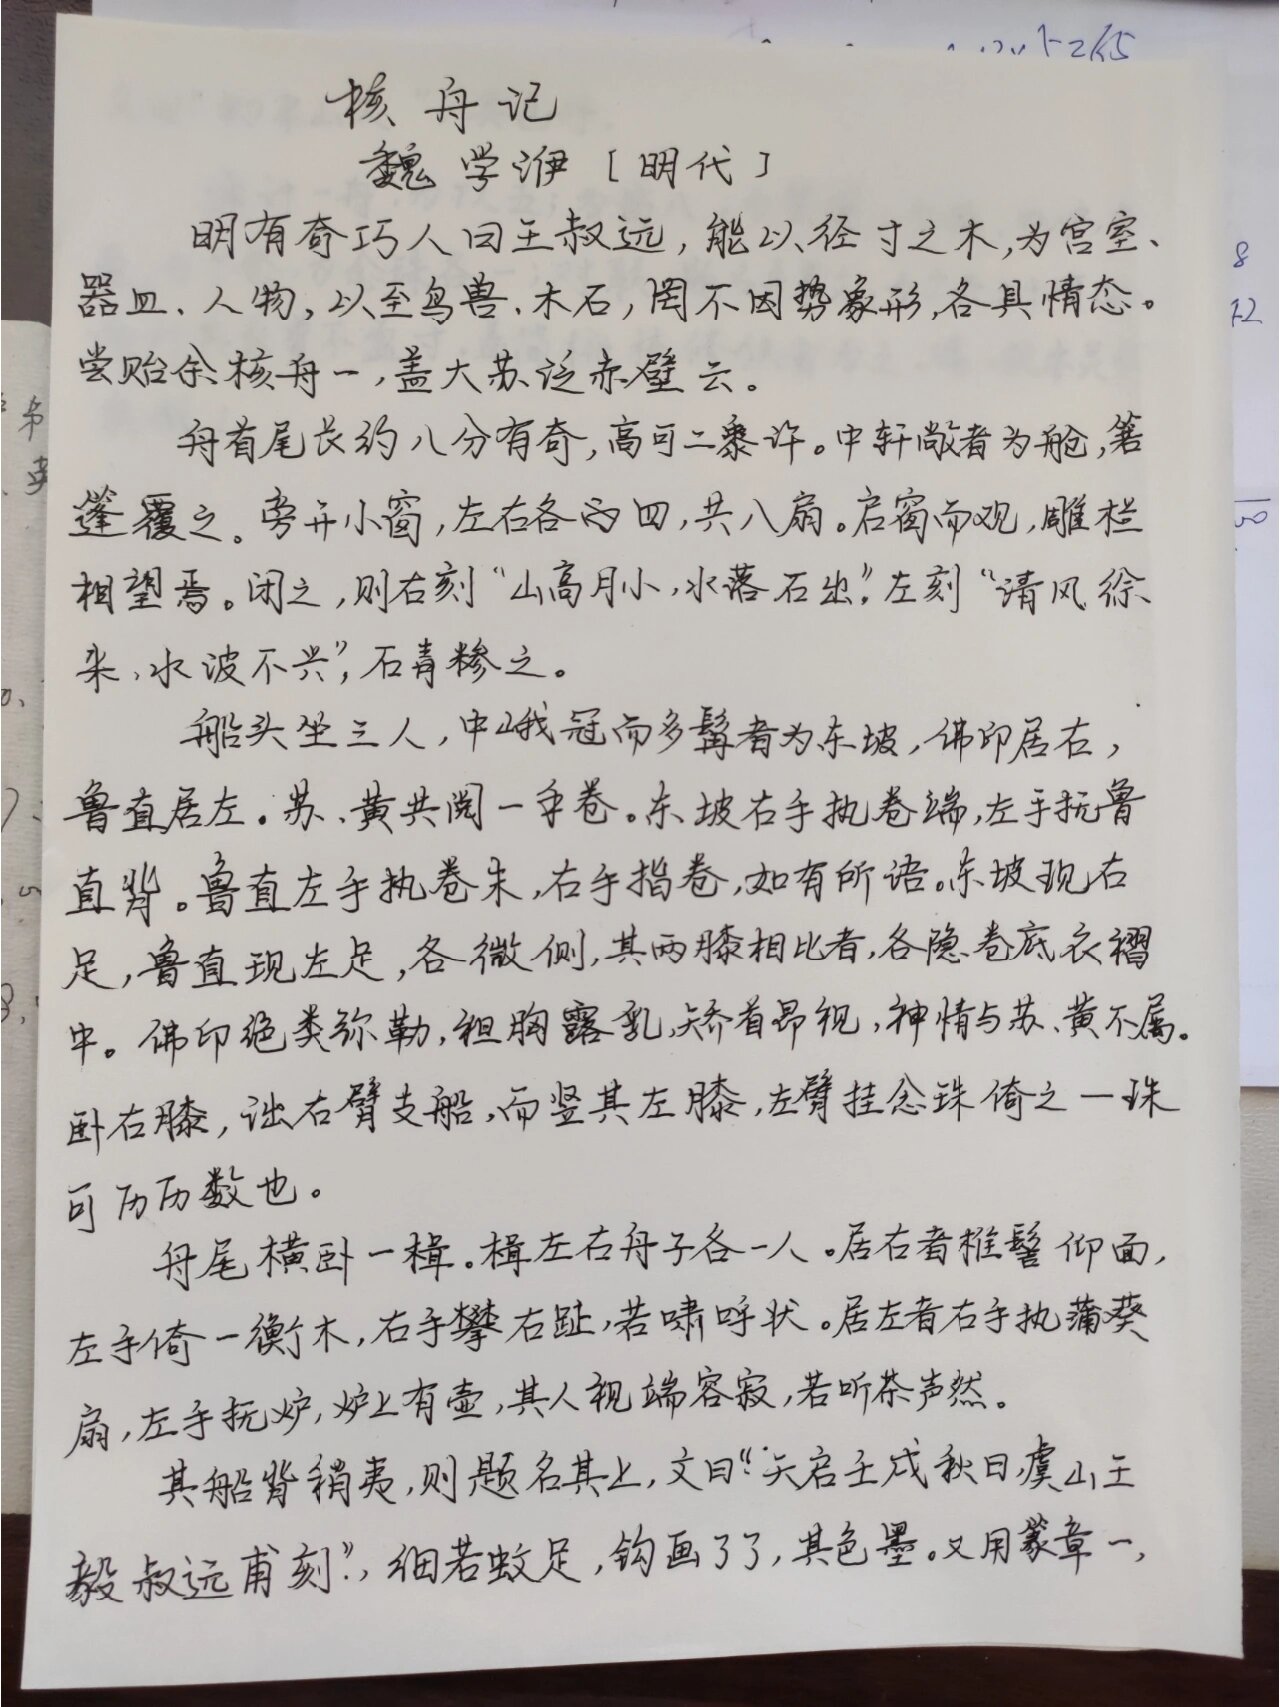 核舟记
魏学洢［明代］
明有奇巧人曰王叔远，能以径寸之木，为宫室、
器皿、人物，以至鸟兽、木石，罔不因势象形，各具情态。
尝贻余核舟一，盖大苏泛赤壁云。
舟首尾长约八分有奇，高可二黍许。中轩敞者为舱，箬
篷覆之。旁开小窗，左右各四，共八扇。启窗而观，雕栏
相望焉。闭之，则右刻“山高月小，水落石出”，左刻“清风徐
来、水波不兴”，石青糁之。
船头坐三人，中峨冠而多髯者为东坡，佛印居右，
鲁直居左。苏、黄共阅一手卷。东坡右手执卷端，左手抚鲁
直背。鲁直左手执卷末，右手指卷，如有所语。东坡现右
足，鲁直现左足，各微侧，其两膝相比者，各隐卷底衣褶
中。佛印绝类弥勒，袒胸露乳，矫首昂视，神情与苏、黄不属。
卧右膝，诎右臂支船，而竖其左膝，左臂挂念珠倚之一珠
可历历数也。
舟尾横卧一楫。楫左右舟子各一人。居右者椎髻仰面，
左手倚一衡木，右手攀右趾，若啸呼状。居左者右手执蒲葵
扇，左手抚炉，炉上有壶，其人视端容寂，若听茶声然。
其船背稍夷，则题名其上，文曰“天启壬戌秋日，虞山王
毅叔远甫刻”，细若蚊足，钩画了了，其色墨。又用篆章一，